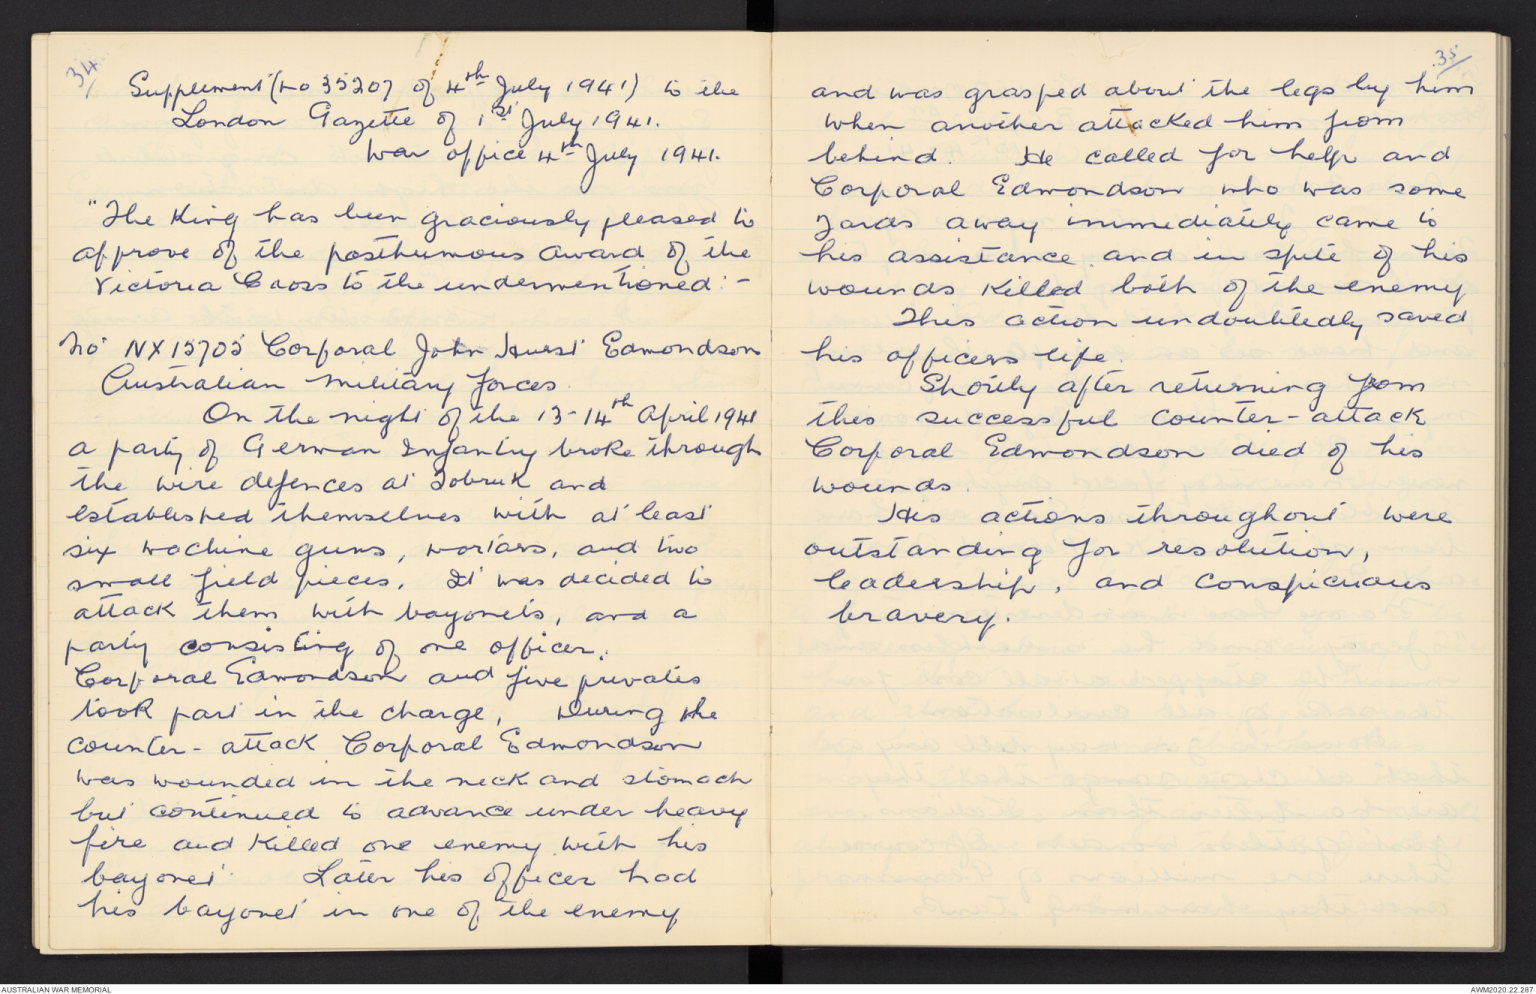 34
Supplement (No 35207 of 4th July 1941) to the
London Gazette of 1st July 1941.
War office 4th July 1941.
"The King has been graciously pleased to
approve of the posthumous award of the
Victoria Cross to the undermentioned:-
No NX15705 Corporal John Hurst Edmondson
Australian Military Forces.
On the night of the 13-14th April 1941
a party of German Infantry broke through
the wire defences at Tobruk and
established themselves with at least
six machine guns, mortars, and two
small field pieces. It was decided to
attack them with bayonets, and a
party consisting of one officer,
Corporal Edmondson and five privates
took part in the charge, During the
counter-attack Corporal Edmondson
was wounded in the neck and stomach
but continued to advance under heavy
fire and killed one enemy with his
bayonet. Later his officer had
his bayonet in one of the enemy
35
and was grasped about the legs by him
when another attacked him from
behind. He called for help and
Corporal Edmondson who was some
yards away immediately came to
his assistance and in spite of his
wounds killed both of the enemy
This action undoubtedly saved
his officers life
Shortly after returning from
this successful counter-attack
Corporal Edmondson died of his
wounds.
His actions throughout were
outstanding for resolution,
leadership, and conspicuous
bravery.
AUSTRALIAN WAR MEMORIAL
AWM2020.22.287